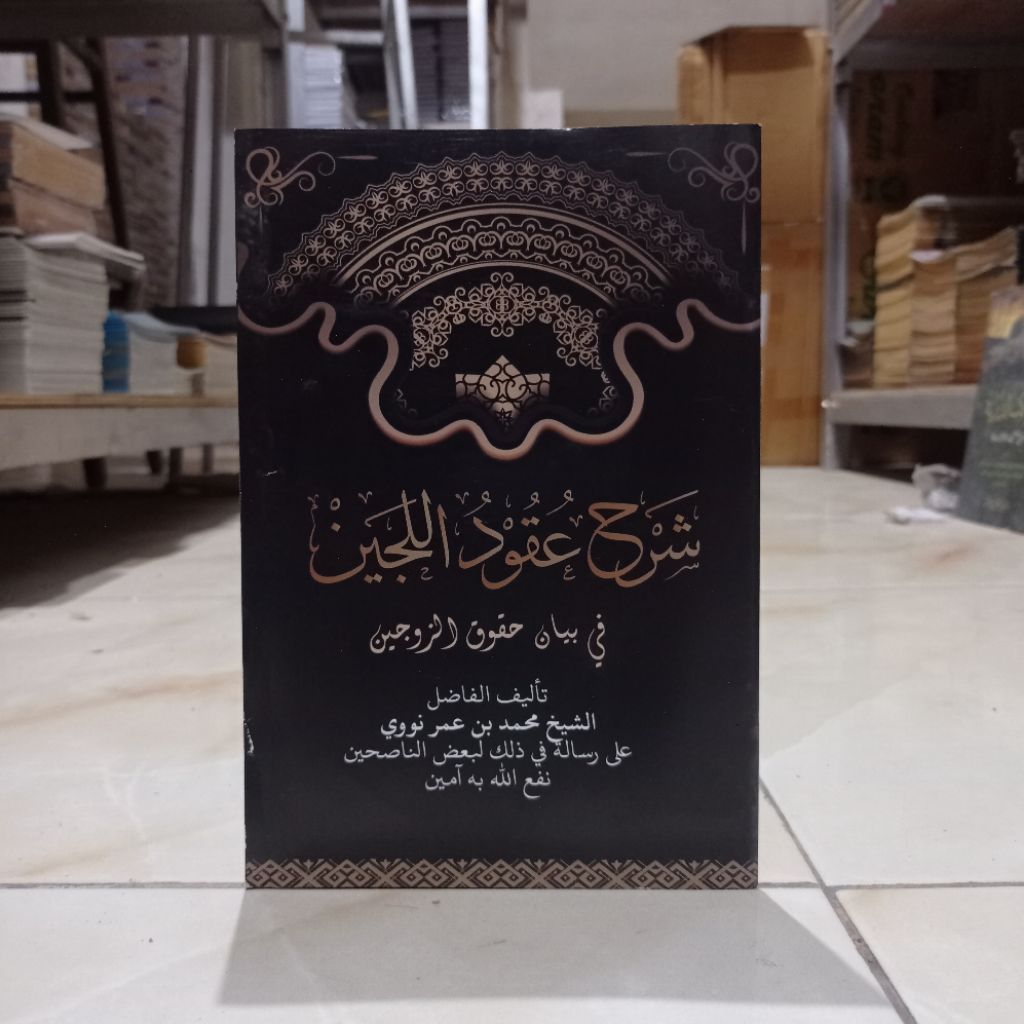 شَرْح عُقُودُ اللَّجَيْنْ
في بيان حقوق الزوجين
تأليف الفاضل
الشيخ محمد بن عمر نووي
على رسالة في ذلك لبعض الناصحين
نفع الله به آمين